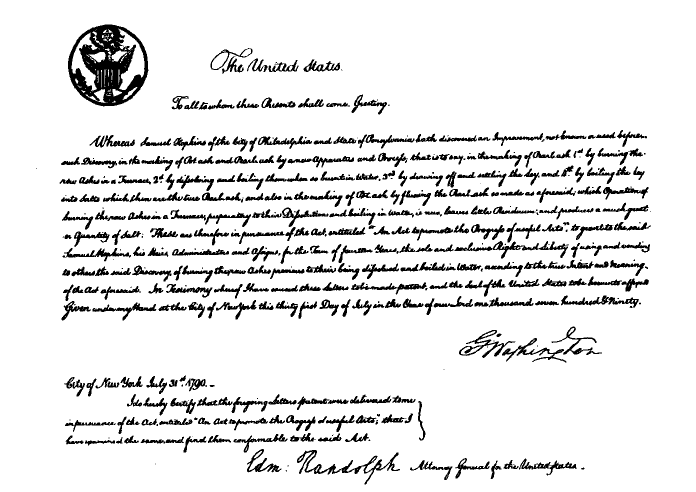 The United States.
To all to whom these Presents shall come. Greeting.
Whereas Samuel Hopkins of the City of Philadelphia and State of Pensylvania hath discovered an Improvement, not known or used before
such Discovery, in the making of Pot ash and Pearl ash by a new Apparatus and Process, that is to say, in the making of Pearl ash 1st by burning the
raw Ashes in a Furnace, 2d by dissolving and boiling them when so burnt in Water, 3rd by drawing off and settling the Ley, and 4th by boiling the Ley
into Salts which then are the true Pearl ash, and also in the making of Pot ash by fluxing the Pearl ash so made as aforesaid; which Operation of
burning the raw Ashes in a Furnace, preparatory to their Dissolution and boiling in Water, is new, leaves little Residuum; and produces a much great
er Quantity of Salt: These are therefore in pursuance of the Act, entituled "An Act to promote the Progress of useful Arts", to grant to the said
Samuel Hopkins, his Heirs, Administrators and Assigns, for the Term of fourteen Years, the sole and exclusive Right and Liberty of using and vending
to others the said Discovery of burning the raw Ashes previous to their being dissolved and boiled in Water, according to the true Intent and Meaning
of the Act aforesaid. In Testimony whereof I have caused these Letters to be made patent, and the Seal of the United States to be hereunto affixed
Given under my Hand at the City of New York this thirty first Day of July in the Year of our Lord one thousand seven hundred & Ninety.
G Washington
City of New York July 31st 1790. –
I do hereby Certify that the foregoing Letters patent were delivered to me
in pursuance of the Act, entituled "An Act to promote the Progress of useful Arts"; that I
have examined the same, and find them conformable to the said Act.
Edm: Randolph Attorney General for the United States.